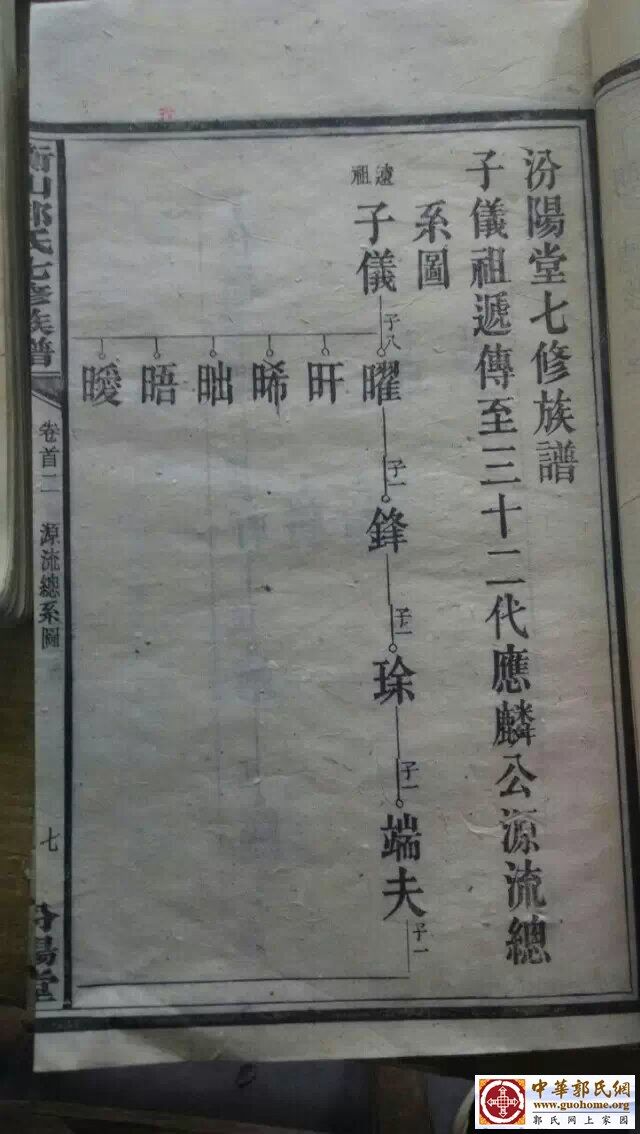 汾陽堂七修族譜
子儀祖遞傳至三十二代應麟公源流總
系圖
遠祖
子儀
子八
曜
旰
晞
昢
晤
曖
子一
鋒
子二
琮
子一
端夫
子一
衡山郭氏七修族譜
卷首二
源流總系圖
七
汾陽堂
中華郭氏網
www.guohome.org
郭氏网上家园